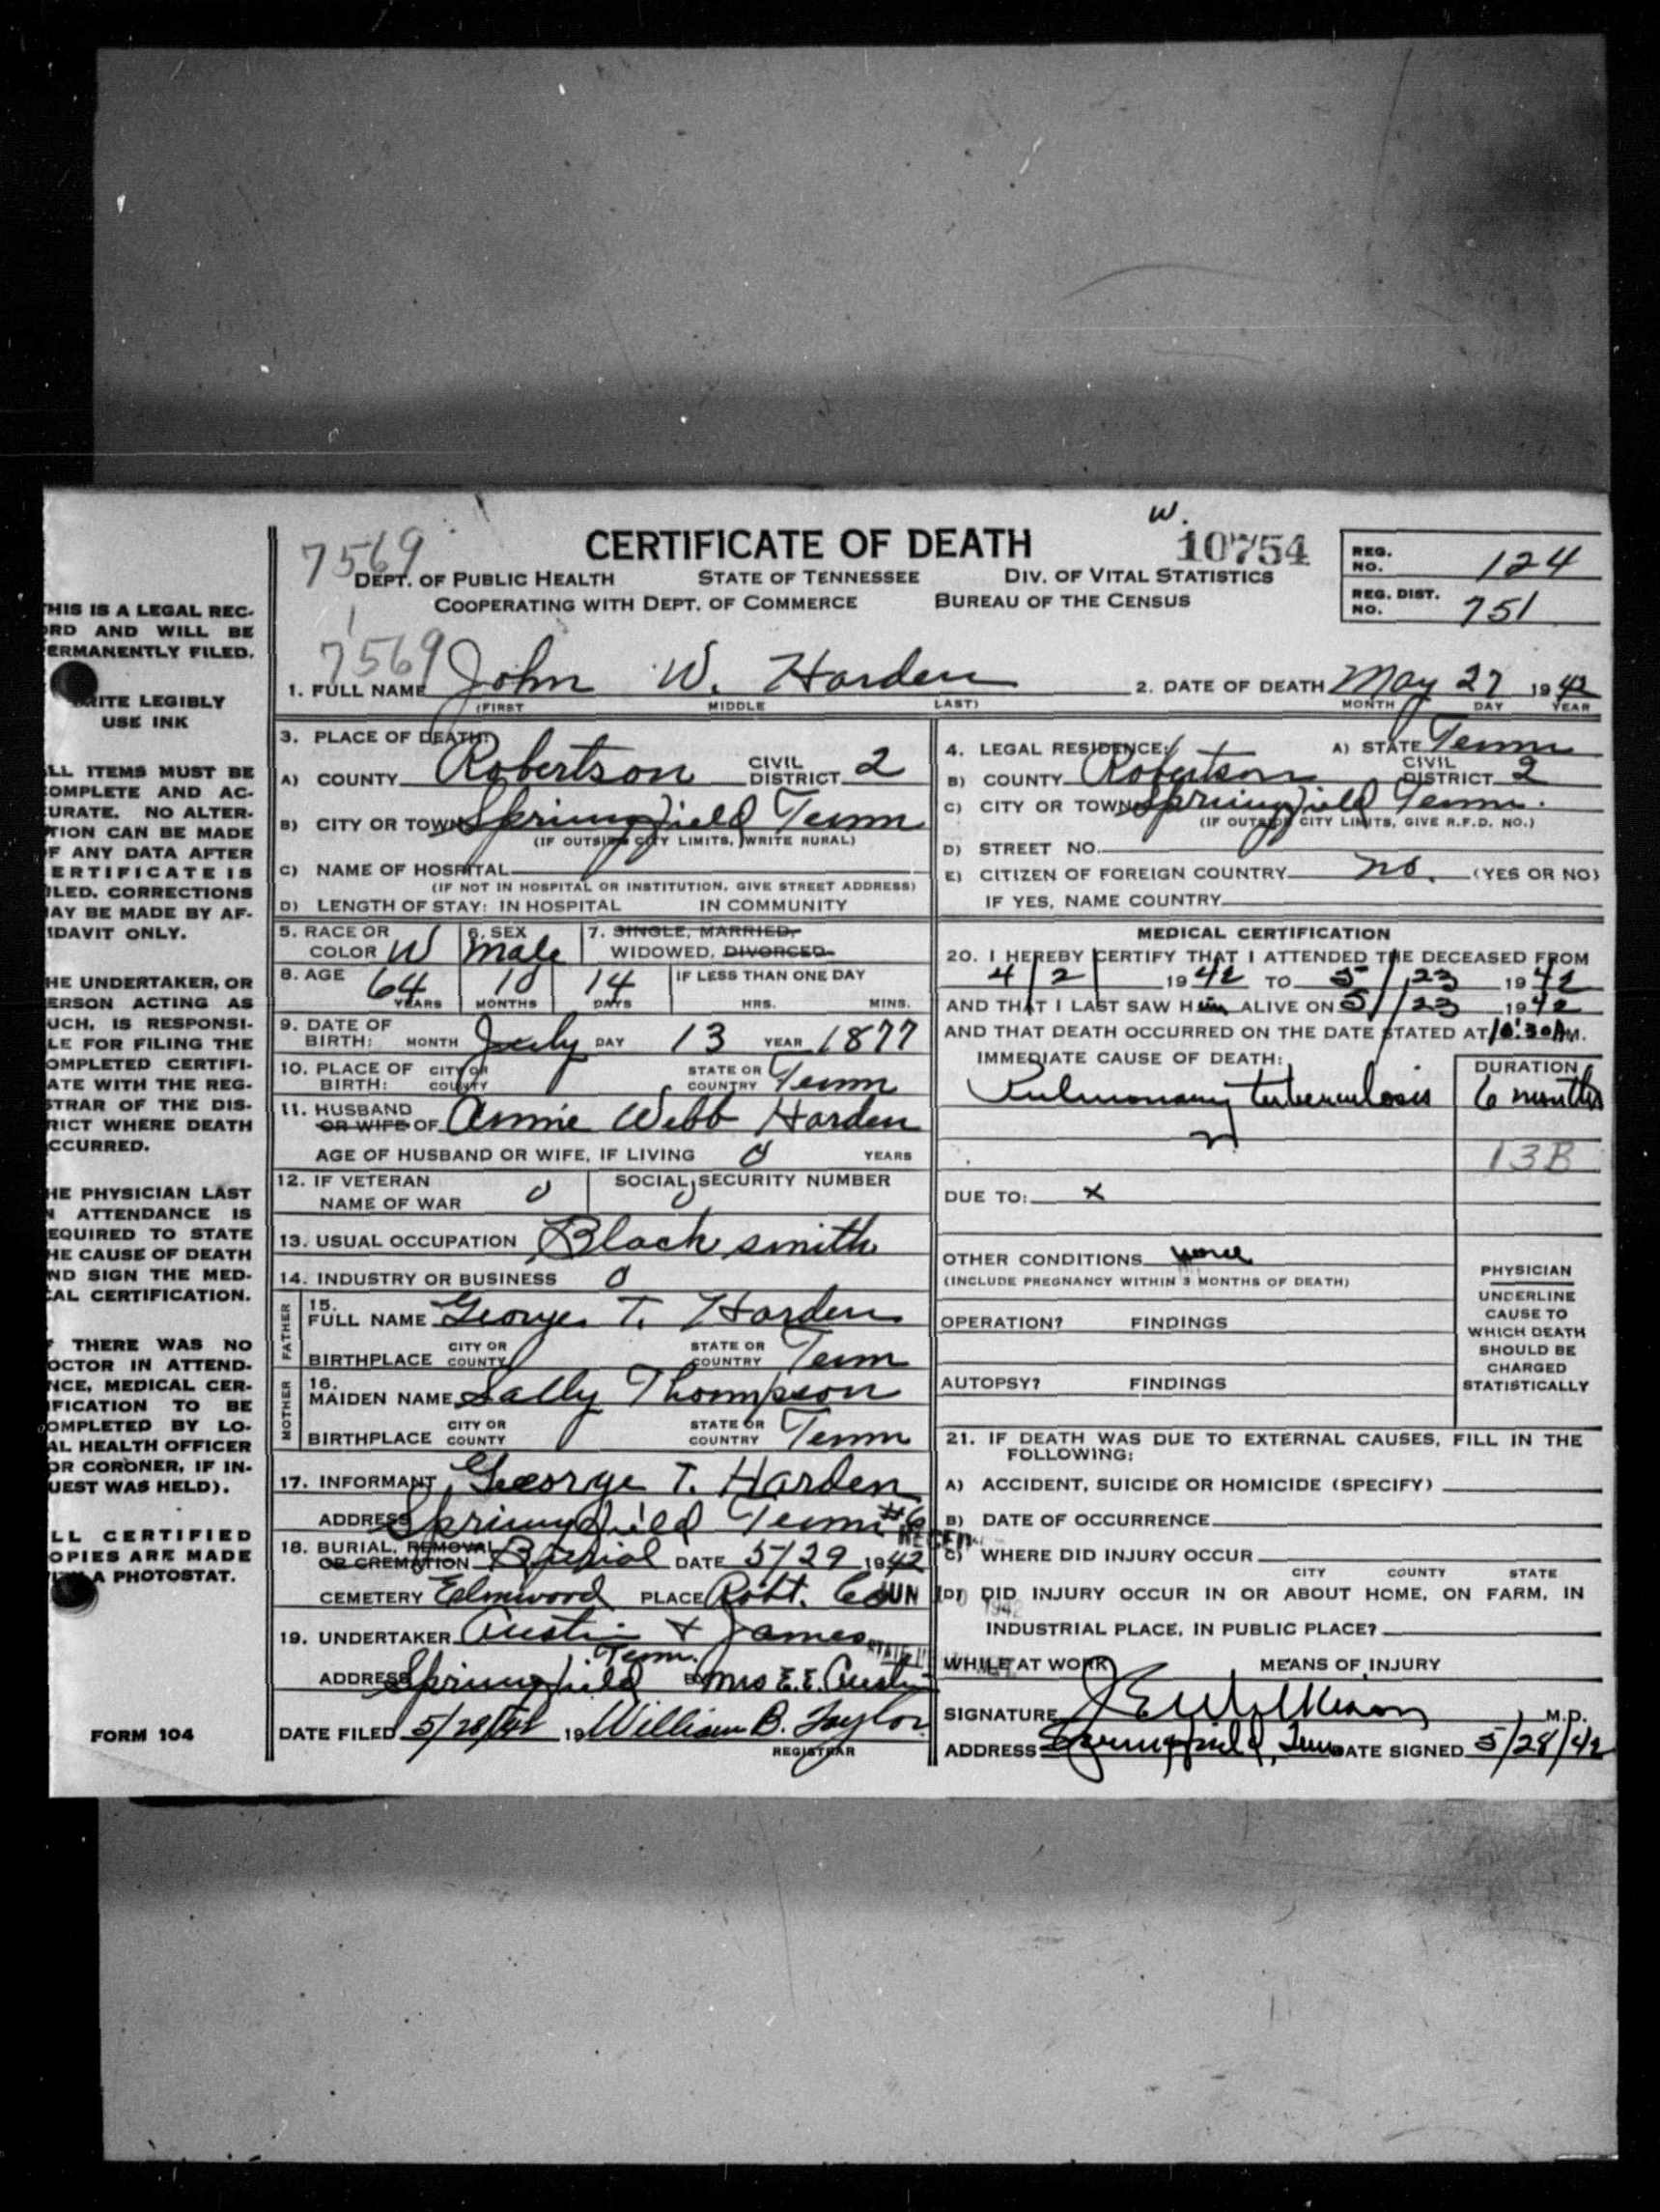 7569
CERTIFICATE OF DEATH
W.
10754
REG. NO. 124
DEPT. OF PUBLIC HEALTH STATE OF TENNESSEE DIV. OF VITAL STATISTICS
COOPERATING WITH DEPT. OF COMMERCE BUREAU OF THE CENSUS
REG. DIST. NO. 751
7569
1. FULL NAME John W. Harden 2. DATE OF DEATH May 27 1942
(FIRST MIDDLE LAST) MONTH DAY YEAR
HIS IS A LEGAL REC-
RD AND WILL BE
ERMANENTLY FILED.
RITE LEGIBLY
USE INK
LL ITEMS MUST BE
OMPLETE AND AC-
URATE. NO ALTER-
TION CAN BE MADE
F ANY DATA AFTER
ERTIFICATE IS
ILED. CORRECTIONS
AY BE MADE BY AF-
IDAVIT ONLY.
HE UNDERTAKER, OR
ERSON ACTING AS
UCH, IS RESPONSI-
LE FOR FILING THE
OMPLETED CERTIFI-
ATE WITH THE REG-
STRAR OF THE DIS-
RICT WHERE DEATH
CCURRED.
HE PHYSICIAN LAST
N ATTENDANCE IS
EQUIRED TO STATE
HE CAUSE OF DEATH
ND SIGN THE MED-
CAL CERTIFICATION.
THERE WAS NO
OCTOR IN ATTEND-
NCE, MEDICAL CER-
IFICATION TO BE
OMPLETED BY LO-
AL HEALTH OFFICER
OR CORONER, IF IN-
UEST WAS HELD).
LL CERTIFIED
OPIES ARE MADE
A PHOTOSTAT.
FORM 104
3. PLACE OF DEATH:
A) COUNTY Robertson CIVIL DISTRICT 2
B) CITY OR TOWN Springfield Tenn
(IF OUTSIDE CITY LIMITS, WRITE RURAL)
C) NAME OF HOSPITAL
(IF NOT IN HOSPITAL OR INSTITUTION, GIVE STREET ADDRESS)
D) LENGTH OF STAY: IN HOSPITAL IN COMMUNITY
5. RACE OR COLOR W 6. SEX Male 7. SINGLE, MARRIED, WIDOWED, DIVORCED
8. AGE 64 10 14 IF LESS THAN ONE DAY
YEARS MONTHS DAYS HRS. MINS.
9. DATE OF BIRTH: MONTH July DAY 13 YEAR 1877
10. PLACE OF BIRTH: CITY OR COUNTY STATE OR COUNTRY Tenn
11. HUSBAND OR WIFE OF Annie Webb Harden
AGE OF HUSBAND OR WIFE, IF LIVING 0 YEARS
12. IF VETERAN NAME OF WAR 0 SOCIAL SECURITY NUMBER 0
13. USUAL OCCUPATION Black smith
14. INDUSTRY OR BUSINESS 0
FATHER
15. FULL NAME George T. Harden
BIRTHPLACE CITY OR COUNTY STATE OR COUNTRY Tenn
MOTHER
16. MAIDEN NAME Sally Thompson
BIRTHPLACE CITY OR COUNTY STATE OR COUNTRY Tenn
17. INFORMANT George T. Harden
ADDRESS Springfield Tenn #6
18. BURIAL, REMOVAL OR CREMATION Burial DATE 5/29 1942
CEMETERY Elmwood PLACE Robt. Co
JUN 1942
19. UNDERTAKER Austin & James
ADDRESS Springfield Tenn. BY Mrs E.E. Austin
DATE FILED 5/28/42 19 William B. Taylor
REGISTRAR
4. LEGAL RESIDENCE: A) STATE Tenn
B) COUNTY Robertson CIVIL DISTRICT 2
C) CITY OR TOWN Springfield Tenn.
(IF OUTSIDE CITY LIMITS, GIVE R.F.D. NO.)
D) STREET NO.
E) CITIZEN OF FOREIGN COUNTRY no. (YES OR NO)
IF YES, NAME COUNTRY
MEDICAL CERTIFICATION
20. I HEREBY CERTIFY THAT I ATTENDED THE DECEASED FROM
4/2 1942 TO 5/23 1942
AND THAT I LAST SAW Him ALIVE ON 5/23 1942
AND THAT DEATH OCCURRED ON THE DATE STATED AT 10:30 AM.
IMMEDIATE CAUSE OF DEATH: DURATION
Pulmonary tuberculosis 6 months
13B
DUE TO: x
OTHER CONDITIONS none
(INCLUDE PREGNANCY WITHIN 3 MONTHS OF DEATH)
OPERATION? FINDINGS
AUTOPSY? FINDINGS
PHYSICIAN
UNDERLINE
CAUSE TO
WHICH DEATH
SHOULD BE
CHARGED
STATISTICALLY
21. IF DEATH WAS DUE TO EXTERNAL CAUSES, FILL IN THE
FOLLOWING:
A) ACCIDENT, SUICIDE OR HOMICIDE (SPECIFY)
B) DATE OF OCCURRENCE
C) WHERE DID INJURY OCCUR
CITY COUNTY STATE
D) DID INJURY OCCUR IN OR ABOUT HOME, ON FARM, IN
INDUSTRIAL PLACE, IN PUBLIC PLACE?
WHILE AT WORK MEANS OF INJURY
SIGNATURE J E Wilkison M.D.
ADDRESS Springfield, Tenn DATE SIGNED 5/28/42